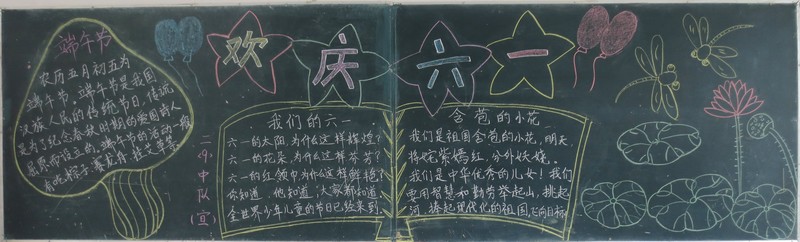 欢庆六一
端午节
农历五月初五为
端午节。端午节是我国
汉族人民的传统节日,传说
是为了纪念春秋时期的爱国诗人
屈原而设立的。端午节的活动一般
有吃粽子、赛龙舟、挂艾草等
二(9)中队(宣)
我们的六一
六一的太阳,为什么这样辉煌?
六一的花朵,为什么这样芬芳?
六一的红领巾为什么这样鲜艳?
你知道,他知道,大家都知道,
全世界少年儿童的节日已经来到
含苞的小花
我们是祖国含苞的小花,明天
将姹紫嫣红,分外妖娆。
我们是中华优秀的儿女!我们
要用智慧和勤劳举起山,挑起
河,捧起现代化的祖国